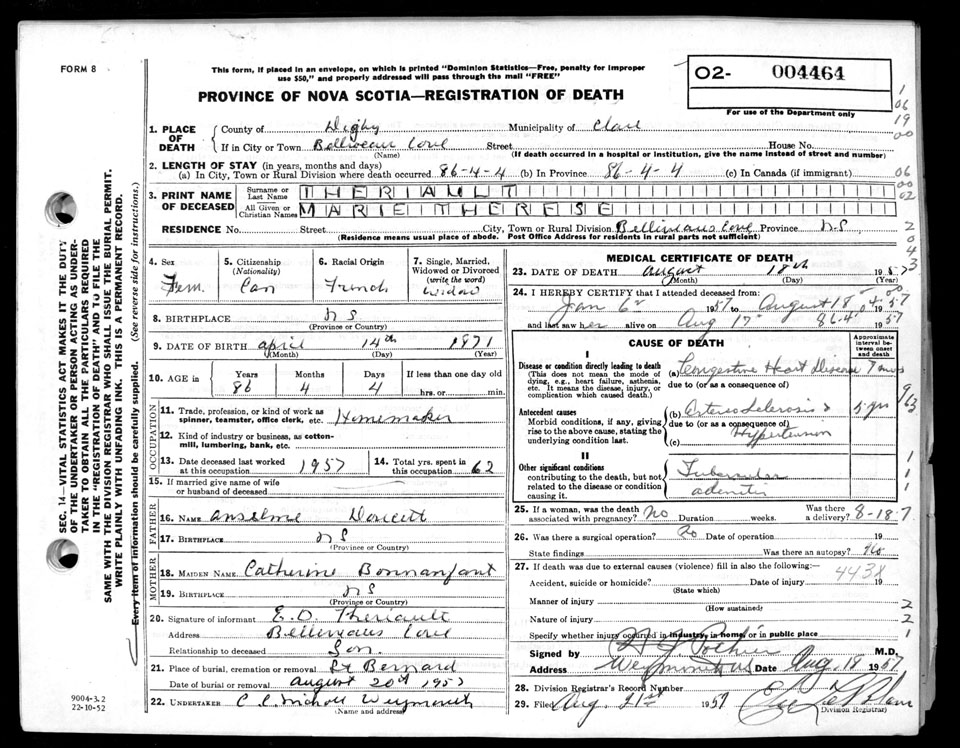 FORM 8
This form, if placed in an envelope, on which is printed "Dominion Statistics—Free, penalty for improper
use $50," and properly addressed will pass through the mail "FREE"
O2- 004464
For use of the Department only
PROVINCE OF NOVA SCOTIA—REGISTRATION OF DEATH
1. PLACE OF DEATH
County of Digby Municipality of Clare
If in City or Town Belliveau Cove Street House No.
(Name) (If death occurred in a hospital or institution, give the name instead of street and number)
2. LENGTH OF STAY (in years, months and days)
(a) In City, Town or Rural Division where death occurred 86-4-4 (b) In Province 86-4-4 (c) In Canada (if immigrant)
3. PRINT NAME OF DECEASED
Surname or Last Name THERIAULT
All Given or Christian Names MARIE THERESE
RESIDENCE No. Street City, Town or Rural Division Belliveaus Cove Province N-S
(Residence means usual place of abode. Post Office Address for residents in rural parts not sufficient)
4. Sex
Fem.
5. Citizenship
(Nationality)
Can
6. Racial Origin
French
7. Single, Married,
Widowed or Divorced
(write the word)
Widow
8. BIRTHPLACE N S
(Province or Country)
9. DATE OF BIRTH April 14th 1871
(Month) (Day) (Year)
10. AGE in
Years Months Days If less than one day old
86 4 4 hrs. or min.
OCCUPATION
11. Trade, profession, or kind of work as
spinner, teamster, office clerk, etc. Homemaker
12. Kind of industry or business, as cotton-
mill, lumbering, bank, etc.
13. Date deceased last worked
at this occupation 1957
14. Total yrs. spent in
this occupation 62
15. If married give name of wife
or husband of deceased
FATHER
16. NAME Anselme Doucett
17. BIRTHPLACE N S
(Province or Country)
MOTHER
18. MAIDEN NAME Catherine Bonnanfant
19. BIRTHPLACE N S
(Province or Country)
20. Signature of informant E. D. Theriault
Address Belliveaus Cove
Relationship to deceased Son.
21. Place of burial, cremation or removal St Bernard
Date of burial or removal August 20th 1957
22. UNDERTAKER C. C. Nichols Weymouth
(Name and address)
MEDICAL CERTIFICATE OF DEATH
23. DATE OF DEATH August 18th 1957
(Month) (Day) (Year)
24. I HEREBY CERTIFY that I attended deceased from:
Jan 6 1957 to August 18 1957
and last saw her alive on Aug 17 1957
86.4
CAUSE OF DEATH
Approximate
interval be-
tween onset
and death
I
Disease or condition directly leading to death
(This does not mean the mode of
dying, e.g., heart failure, asthenia,
etc. It means the disease, injury, or
complication which caused death.)
(a) Congestive Heart Disease 7 mos
due to (or as a consequence of)
Antecedent causes
Morbid conditions, if any, giving
rise to the above cause, stating the
underlying condition last.
(b) Arterio Sclerosis 5 yrs
due to (or as a consequence of)
(c) Hypertension
II
Other significant conditions
contributing to the death, but not
related to the disease or condition
causing it.
Tubercular
adenitis
25. If a woman, was the death
associated with pregnancy? No Duration weeks.
Was there
a delivery? 8-18-7
26. Was there a surgical operation? No Date of operation 19
State findings Was there an autopsy? No
27. If death was due to external causes (violence) fill in also the following:—
4438
Accident, suicide or homicide? Date of injury 19
(State which)
Manner of injury
(How sustained)
Nature of injury
Specify whether injury occurred in industry, in home, or in public place
Signed by Pothier M.D.
Address Weymouth NS Date Aug. 18 1957
28. Division Registrar's Record Number
29. Filed Aug. 21st 1957
(Division Registrar)
SEC. 14—VITAL STATISTICS ACT MAKES IT THE DUTY
OF THE UNDERTAKER OR PERSON ACTING AS UNDER-
TAKER TO OBTAIN ALL THE PARTICULARS REQUIRED
IN THE "REGISTRATION OF DEATH" AND TO FILE THE
SAME WITH THE DIVISION REGISTRAR WHO SHALL ISSUE THE BURIAL PERMIT.
WRITE PLAINLY WITH UNFADING INK. THIS IS A PERMANENT RECORD.
Every item of information should be carefully supplied. (See reverse side for instructions.)
9004-3.2
22-10-52
1
06
19
00
06
00
02
2
0
4
3
9/63
1
1
1
2
2
1